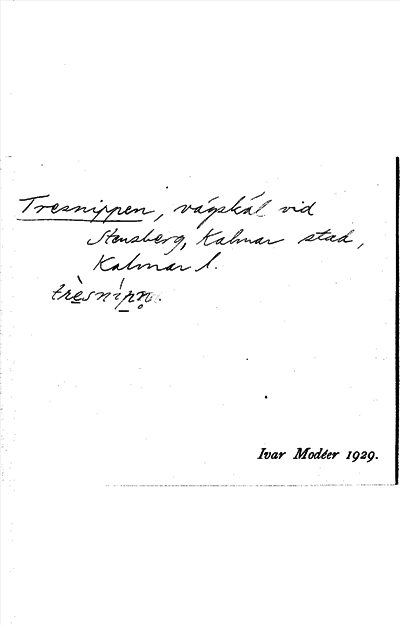 Tresnippen, vägskäl vid
Stensberg, Kalmar stad,
Kalmar l.
trèsnípn̥.
Ivar Modéer 1929.